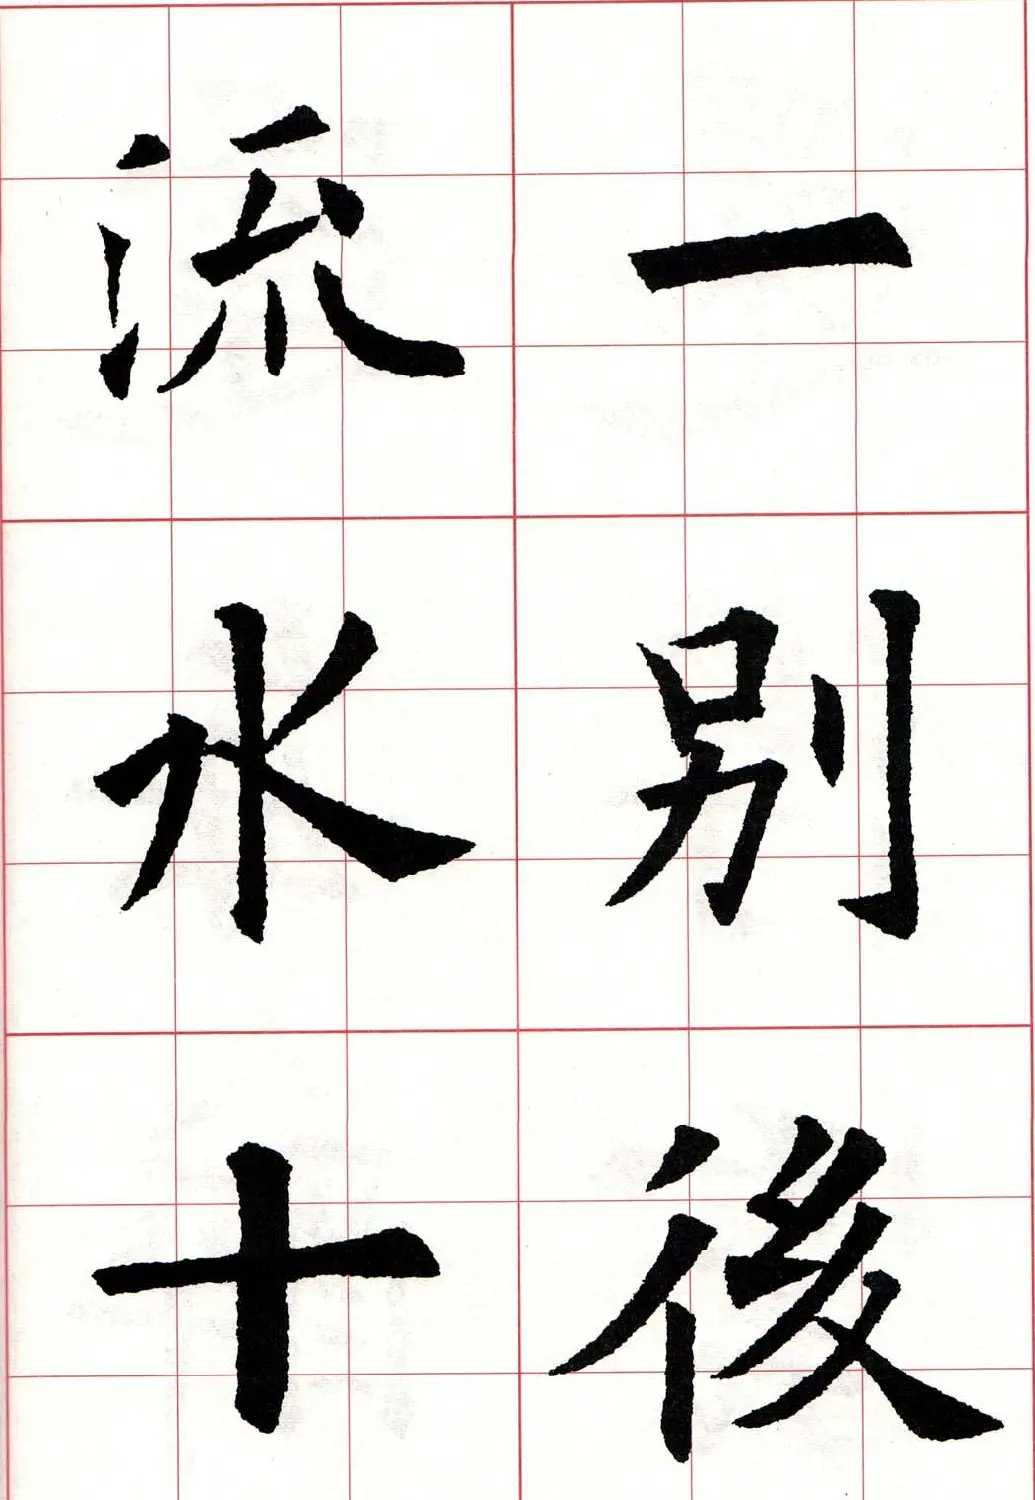 一别後
流水十